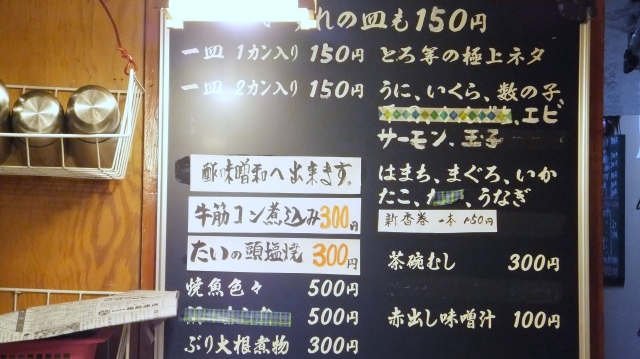 れの皿も150円
一皿 1カン入り 150円
一皿 2カン入り 150円
酢味噌和へ出来ます。
牛筋コン煮込み300円
たいの頭塩焼 300円
焼魚色々 500円
500円
ぶり大根煮物 300円
とろ等の極上ネタ
うに、いくら、数の子
、エビ
サーモン、玉子
はまち、まぐろ、いか
たこ、、うなぎ
新香巻 一本 150円
茶碗むし 300円
赤出し味噌汁 100円